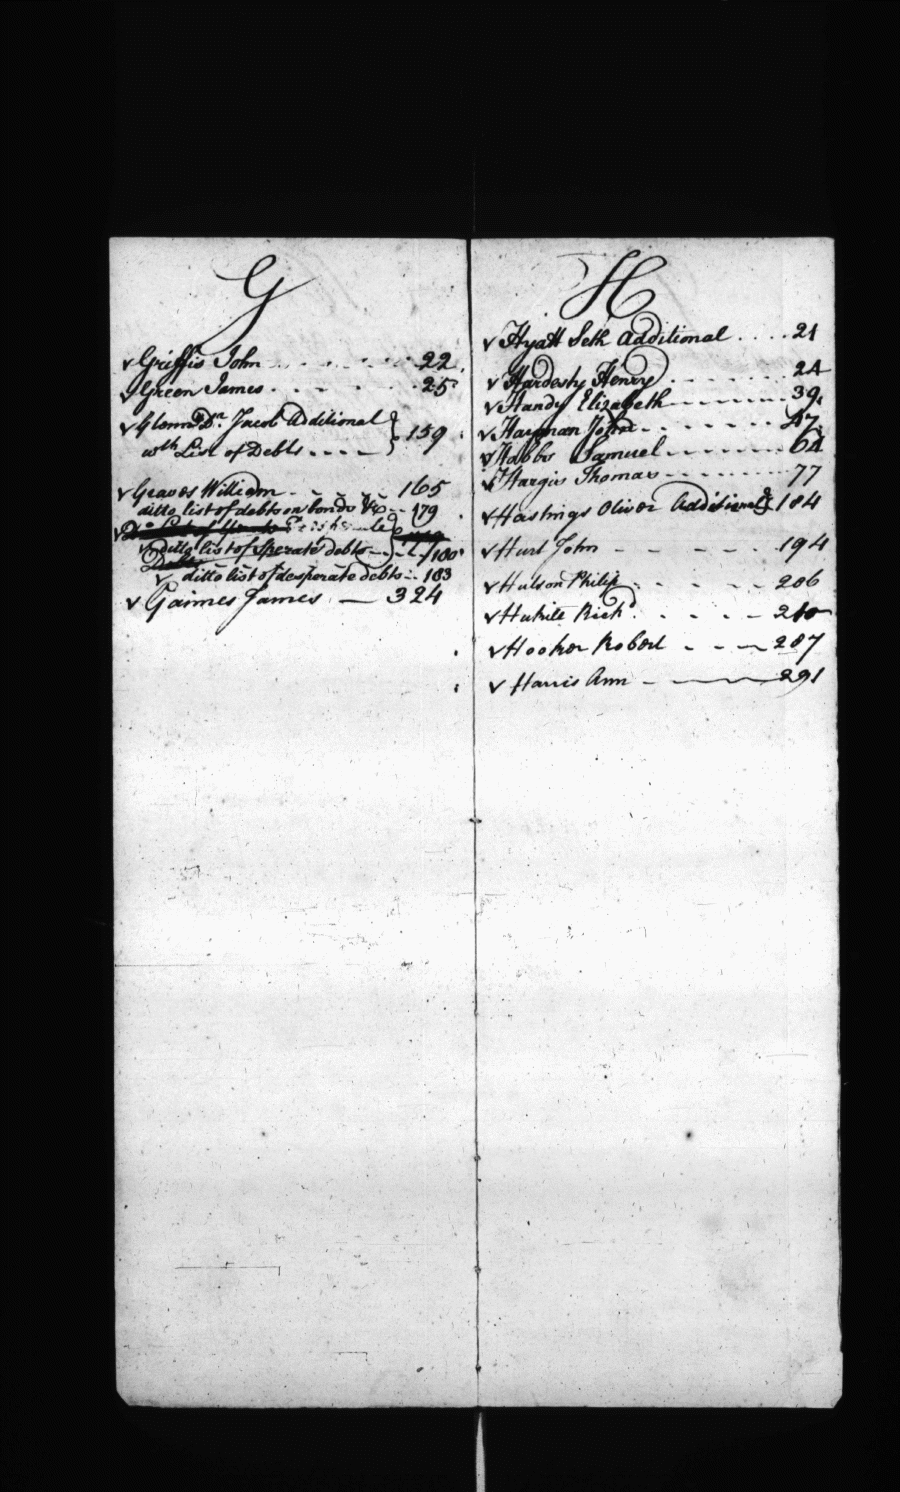 G
v Griffis John 22
v Green James 25
v Glenn Dr. Jacob Additional
wth List of Debts 159
v Graves William 165
ditto list of debts on bonds &c 179
v ditto list of Sperate debts 180
v ditto list of desperate debts 183
v Gaimes James 324
H
v Hyatt Seth Additional 21
v Hardesty Henry 24
v Handy Elizabeth 39
v Harman John 47
v Hobbs Samuel 64
v Hargis Thomas 77
v Hastings Oliver Additional 184
v Hurt John 194
v Hulson Philip 206
v Hukill Richd 210
v Hooker Robert 287
v Harris Ann 291